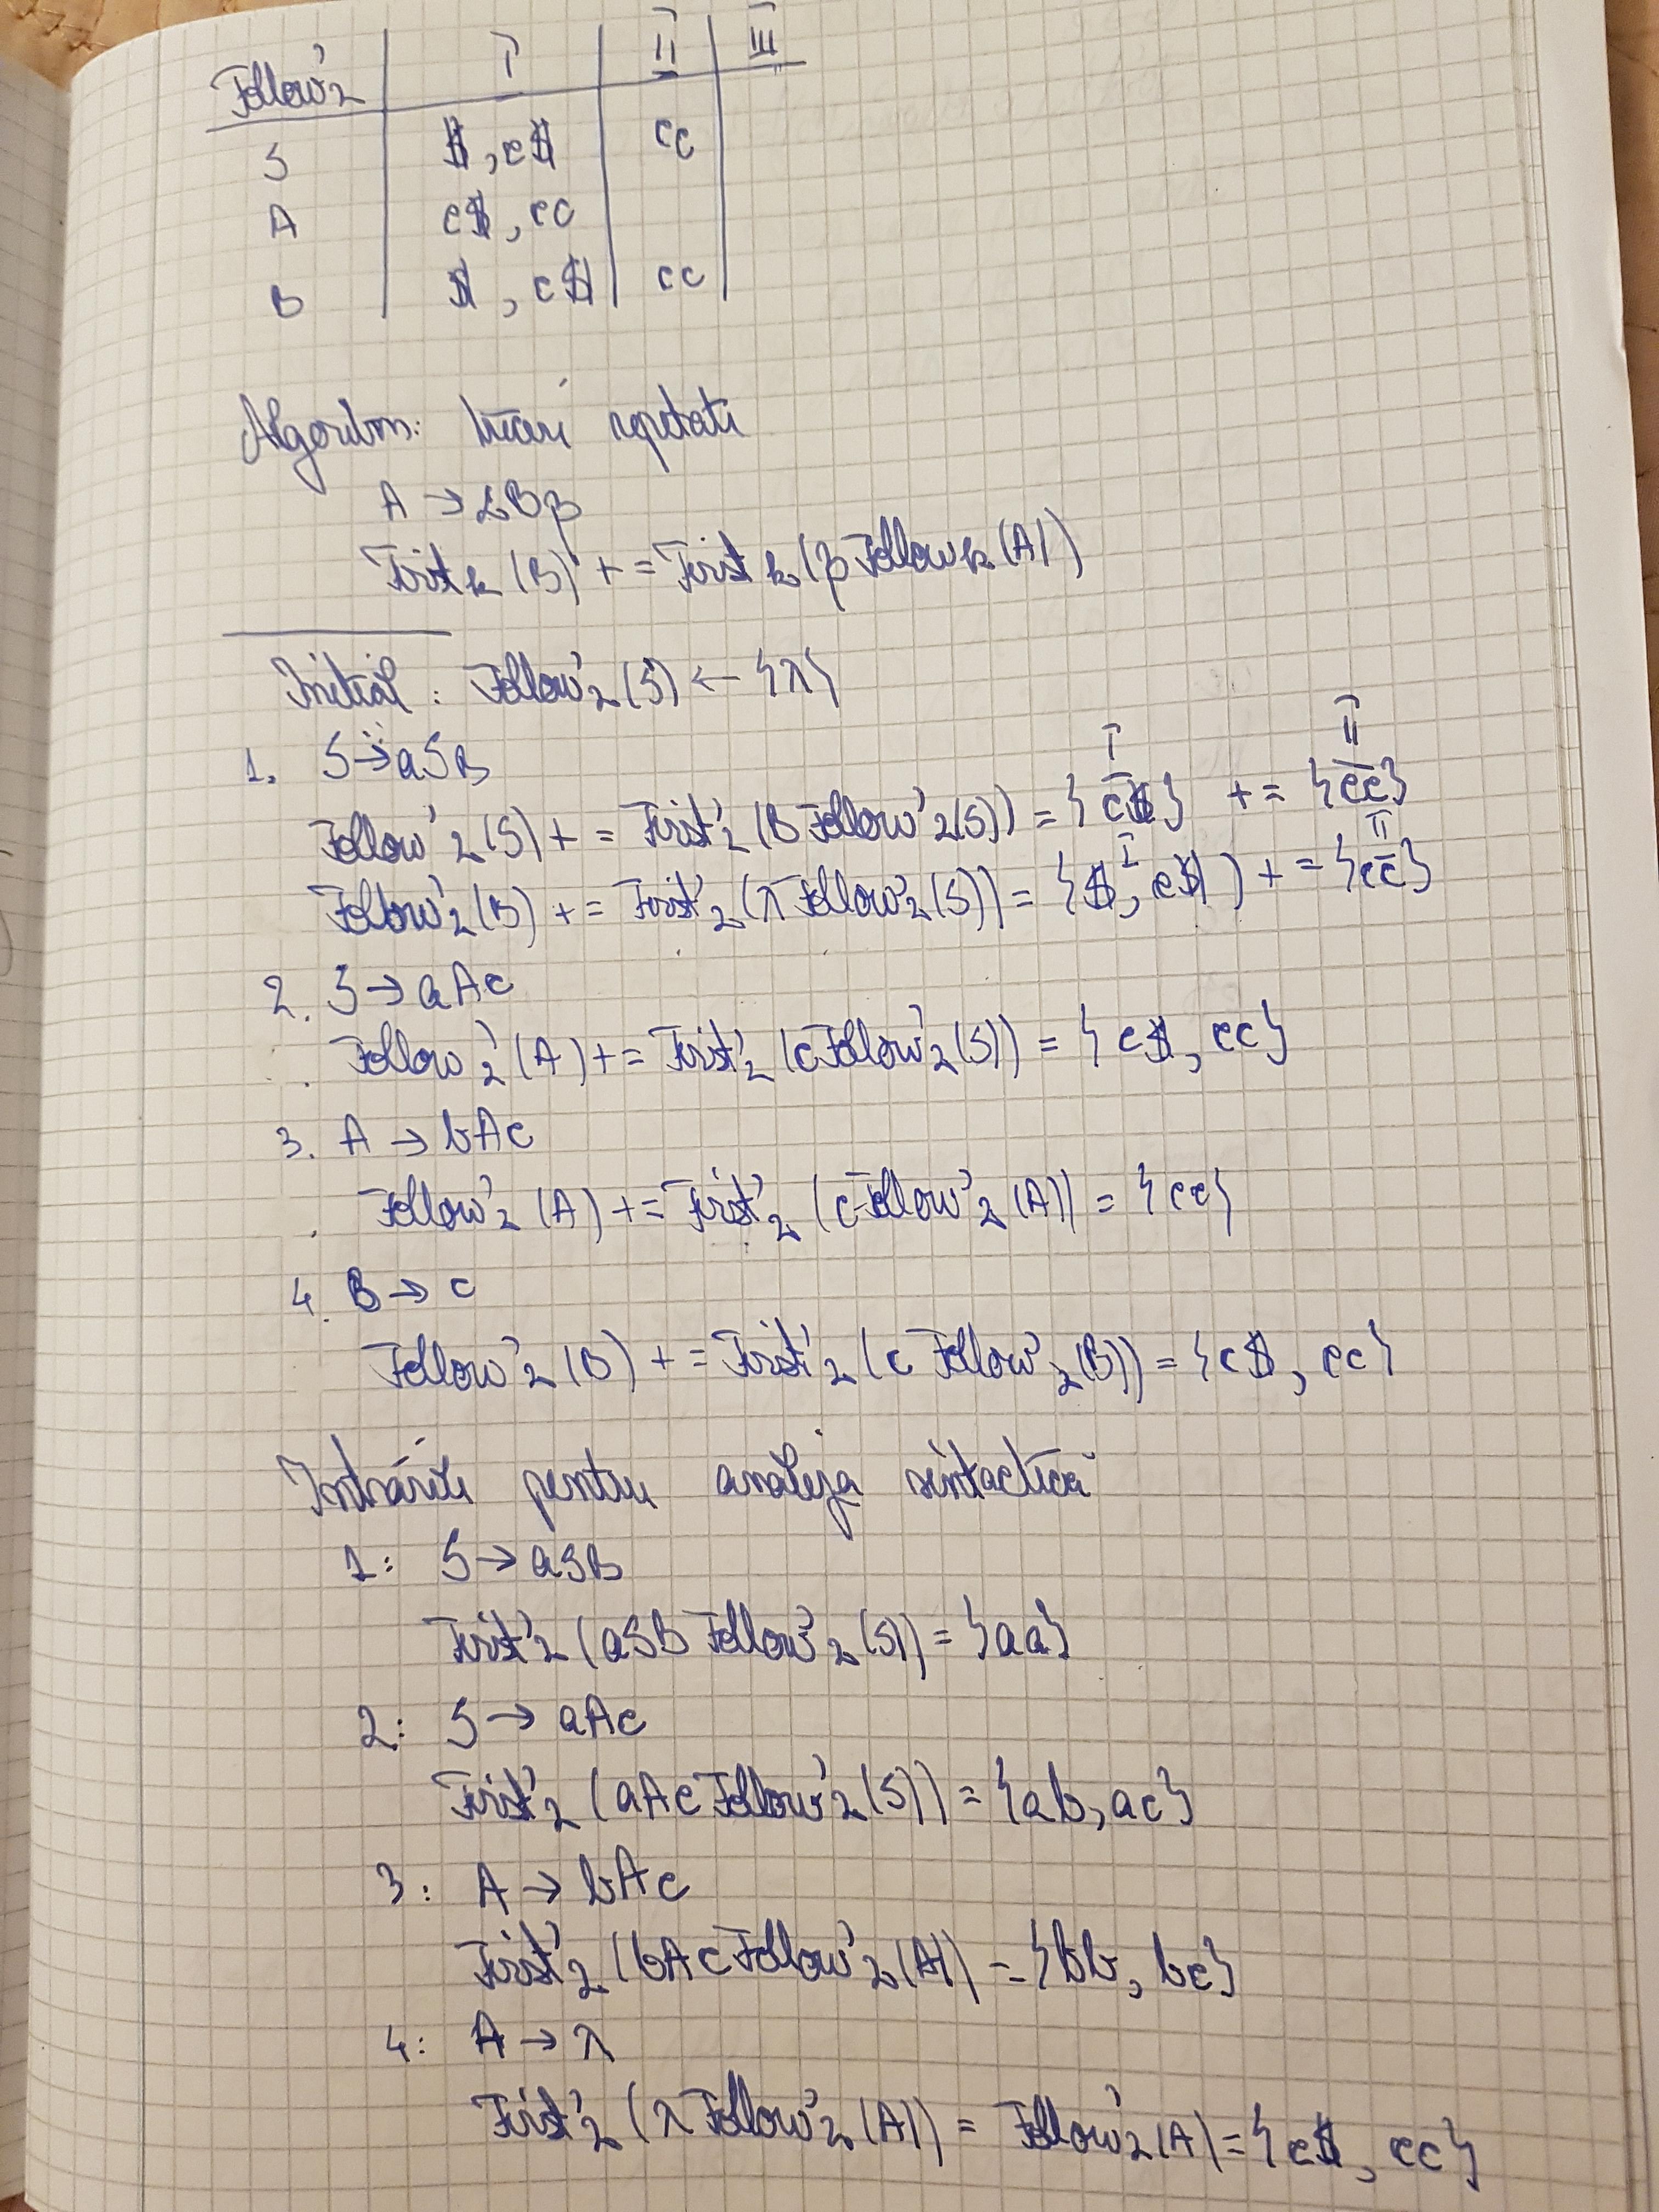 Follow'₂ | I | II | III
S | $, c$ | cc
A | c$, cc
B | $, c$ | cc
Algoritm: treceri repetate
A → αBβ
Firstₖ(B) += Firstₖ(βFollowₖ(A))
Initial: Follow'₂(S) ← {λ}
1. S → aSB
Follow'₂(S) += First'₂(B Follow'₂(S)) = {c$} I += {cc} II
Follow'₂(B) += First'₂(λ Follow'₂(S)) = {$, c$} I += {cc} II
2. S → aAc
Follow'₂(A) += First'₂(cFollow'₂(S)) = {c$, cc}
3. A → bAc
Follow'₂(A) += First'₂(cFollow'₂(A)) = {cc}
4. B → c
Follow'₂(B) += First'₂(c Follow'₂(B)) = {c$, cc}
Intrările pentru analiza sintactică
1: S → aSB
First'₂(aSB Follow'₂(S)) = {aa}
2: S → aAc
First'₂(aAcFollow'₂(S)) = {ab, ac}
3: A → bAc
First'₂(bAcFollow'₂(A)) = {bb, bc}
4: A → λ
First'₂(λ Follow'₂(A)) = Follow'₂(A) = {c$, cc}